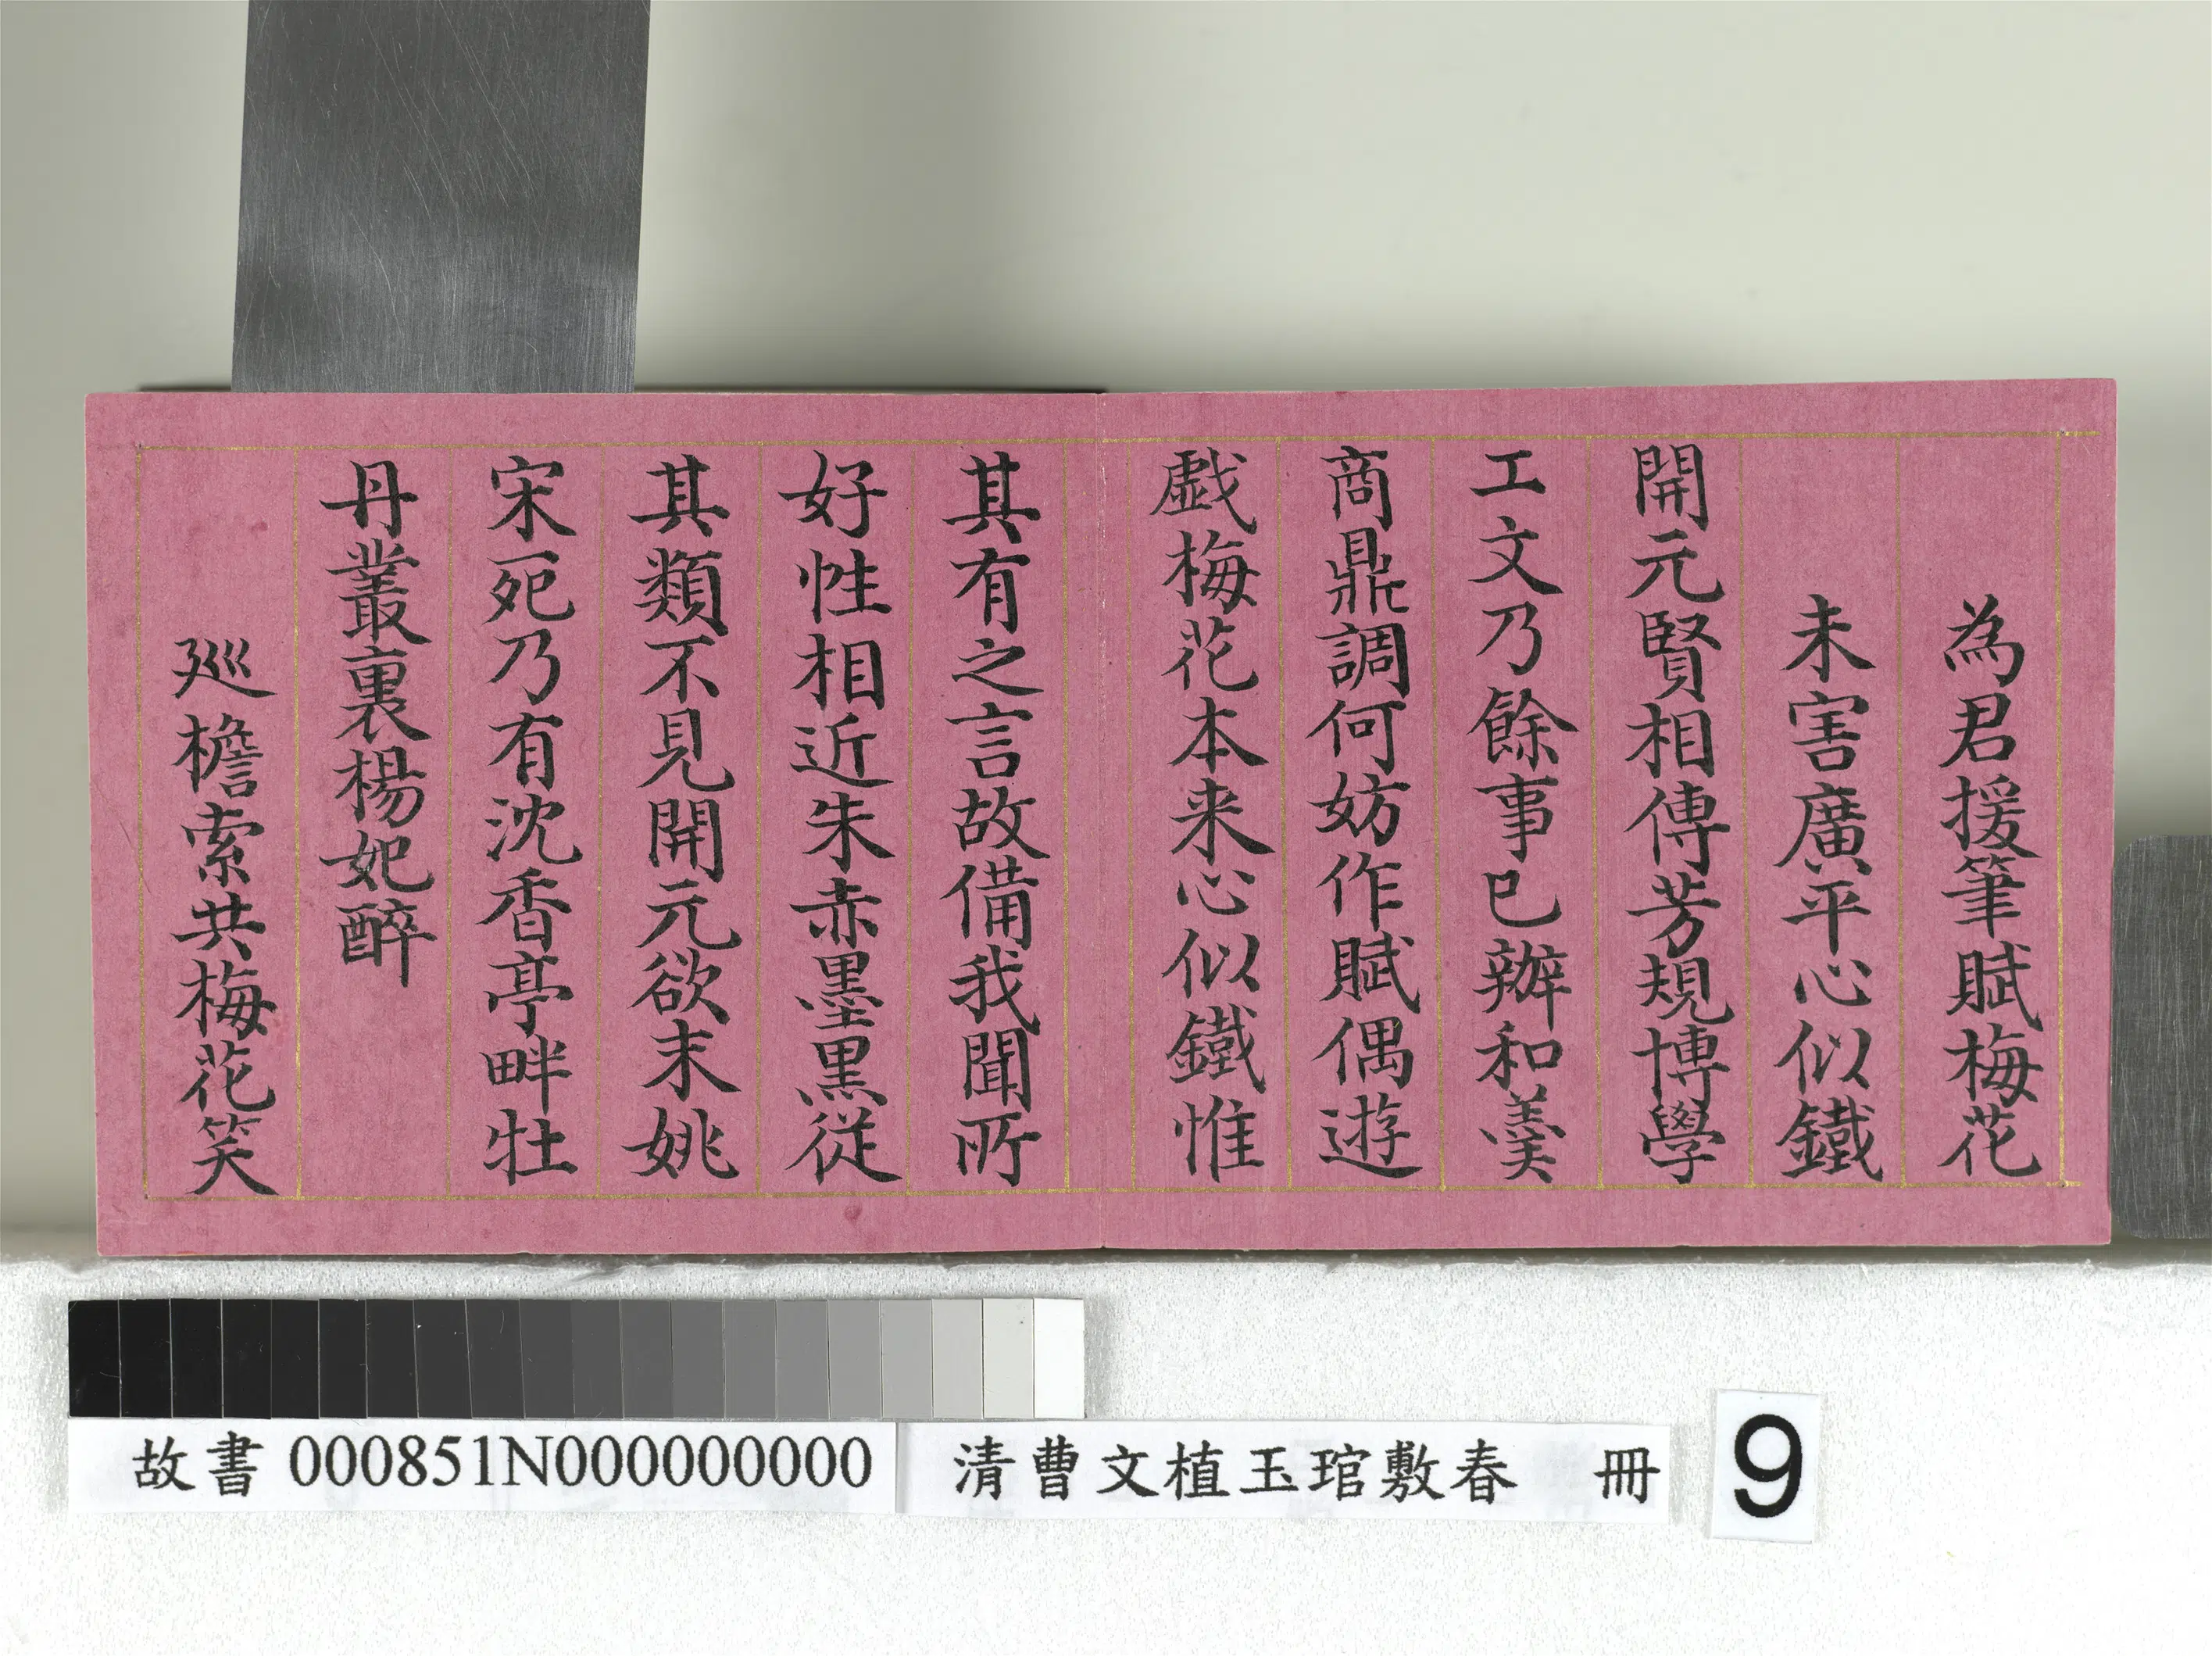 為君援筆賦梅花
未害廣平心似鐵
開元賢相傳芳規博學
工文乃餘事已辦和羹
商鼎調何妨作賦偶遊
戲梅花本来心似鐵惟
其有之言故備我聞所
好性相近朱赤墨黑從
其類不見開元欲末姚
宋死乃有沈香亭畔牡
丹叢裏楊妃醉
廵檐索共梅花笑
故書 000851N000000000 清曹文植玉琯敷春 冊 9